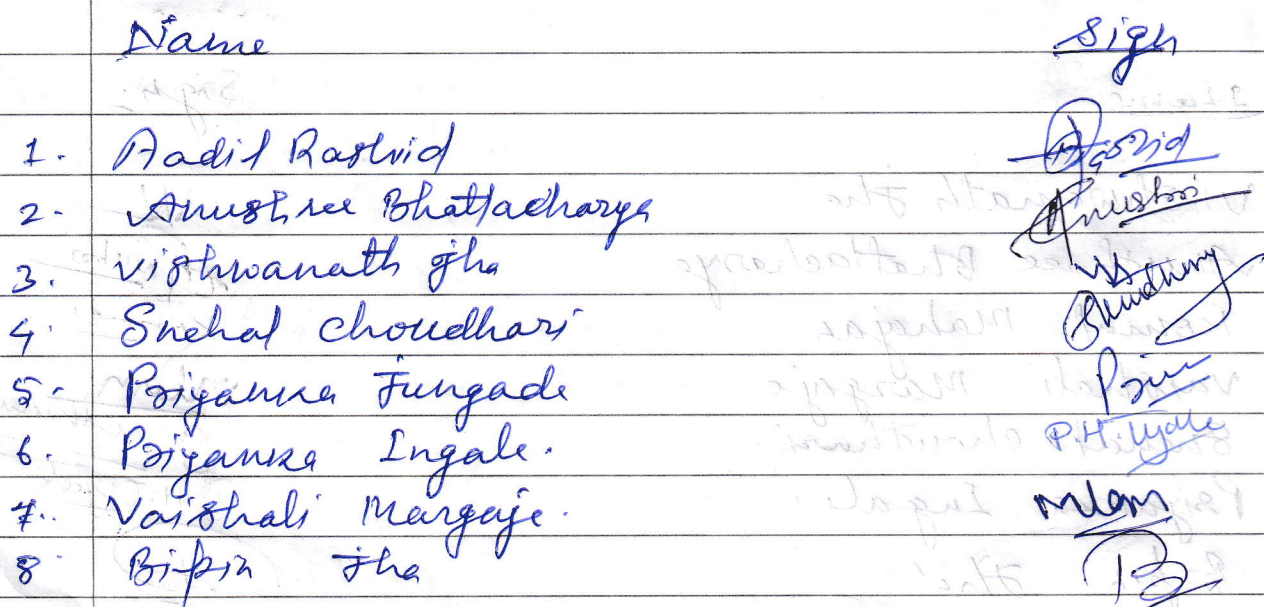 Name Sign
1. Aadil Rashid Rashid
2. Anushree Bhattacharya Anushri
3. Vishwanath Jha
4. Snehal Choudhari
5. Priyanka Jungade
6. Priyanka Ingale.
7. Vaishali Margaje.
8 Bipin Jha